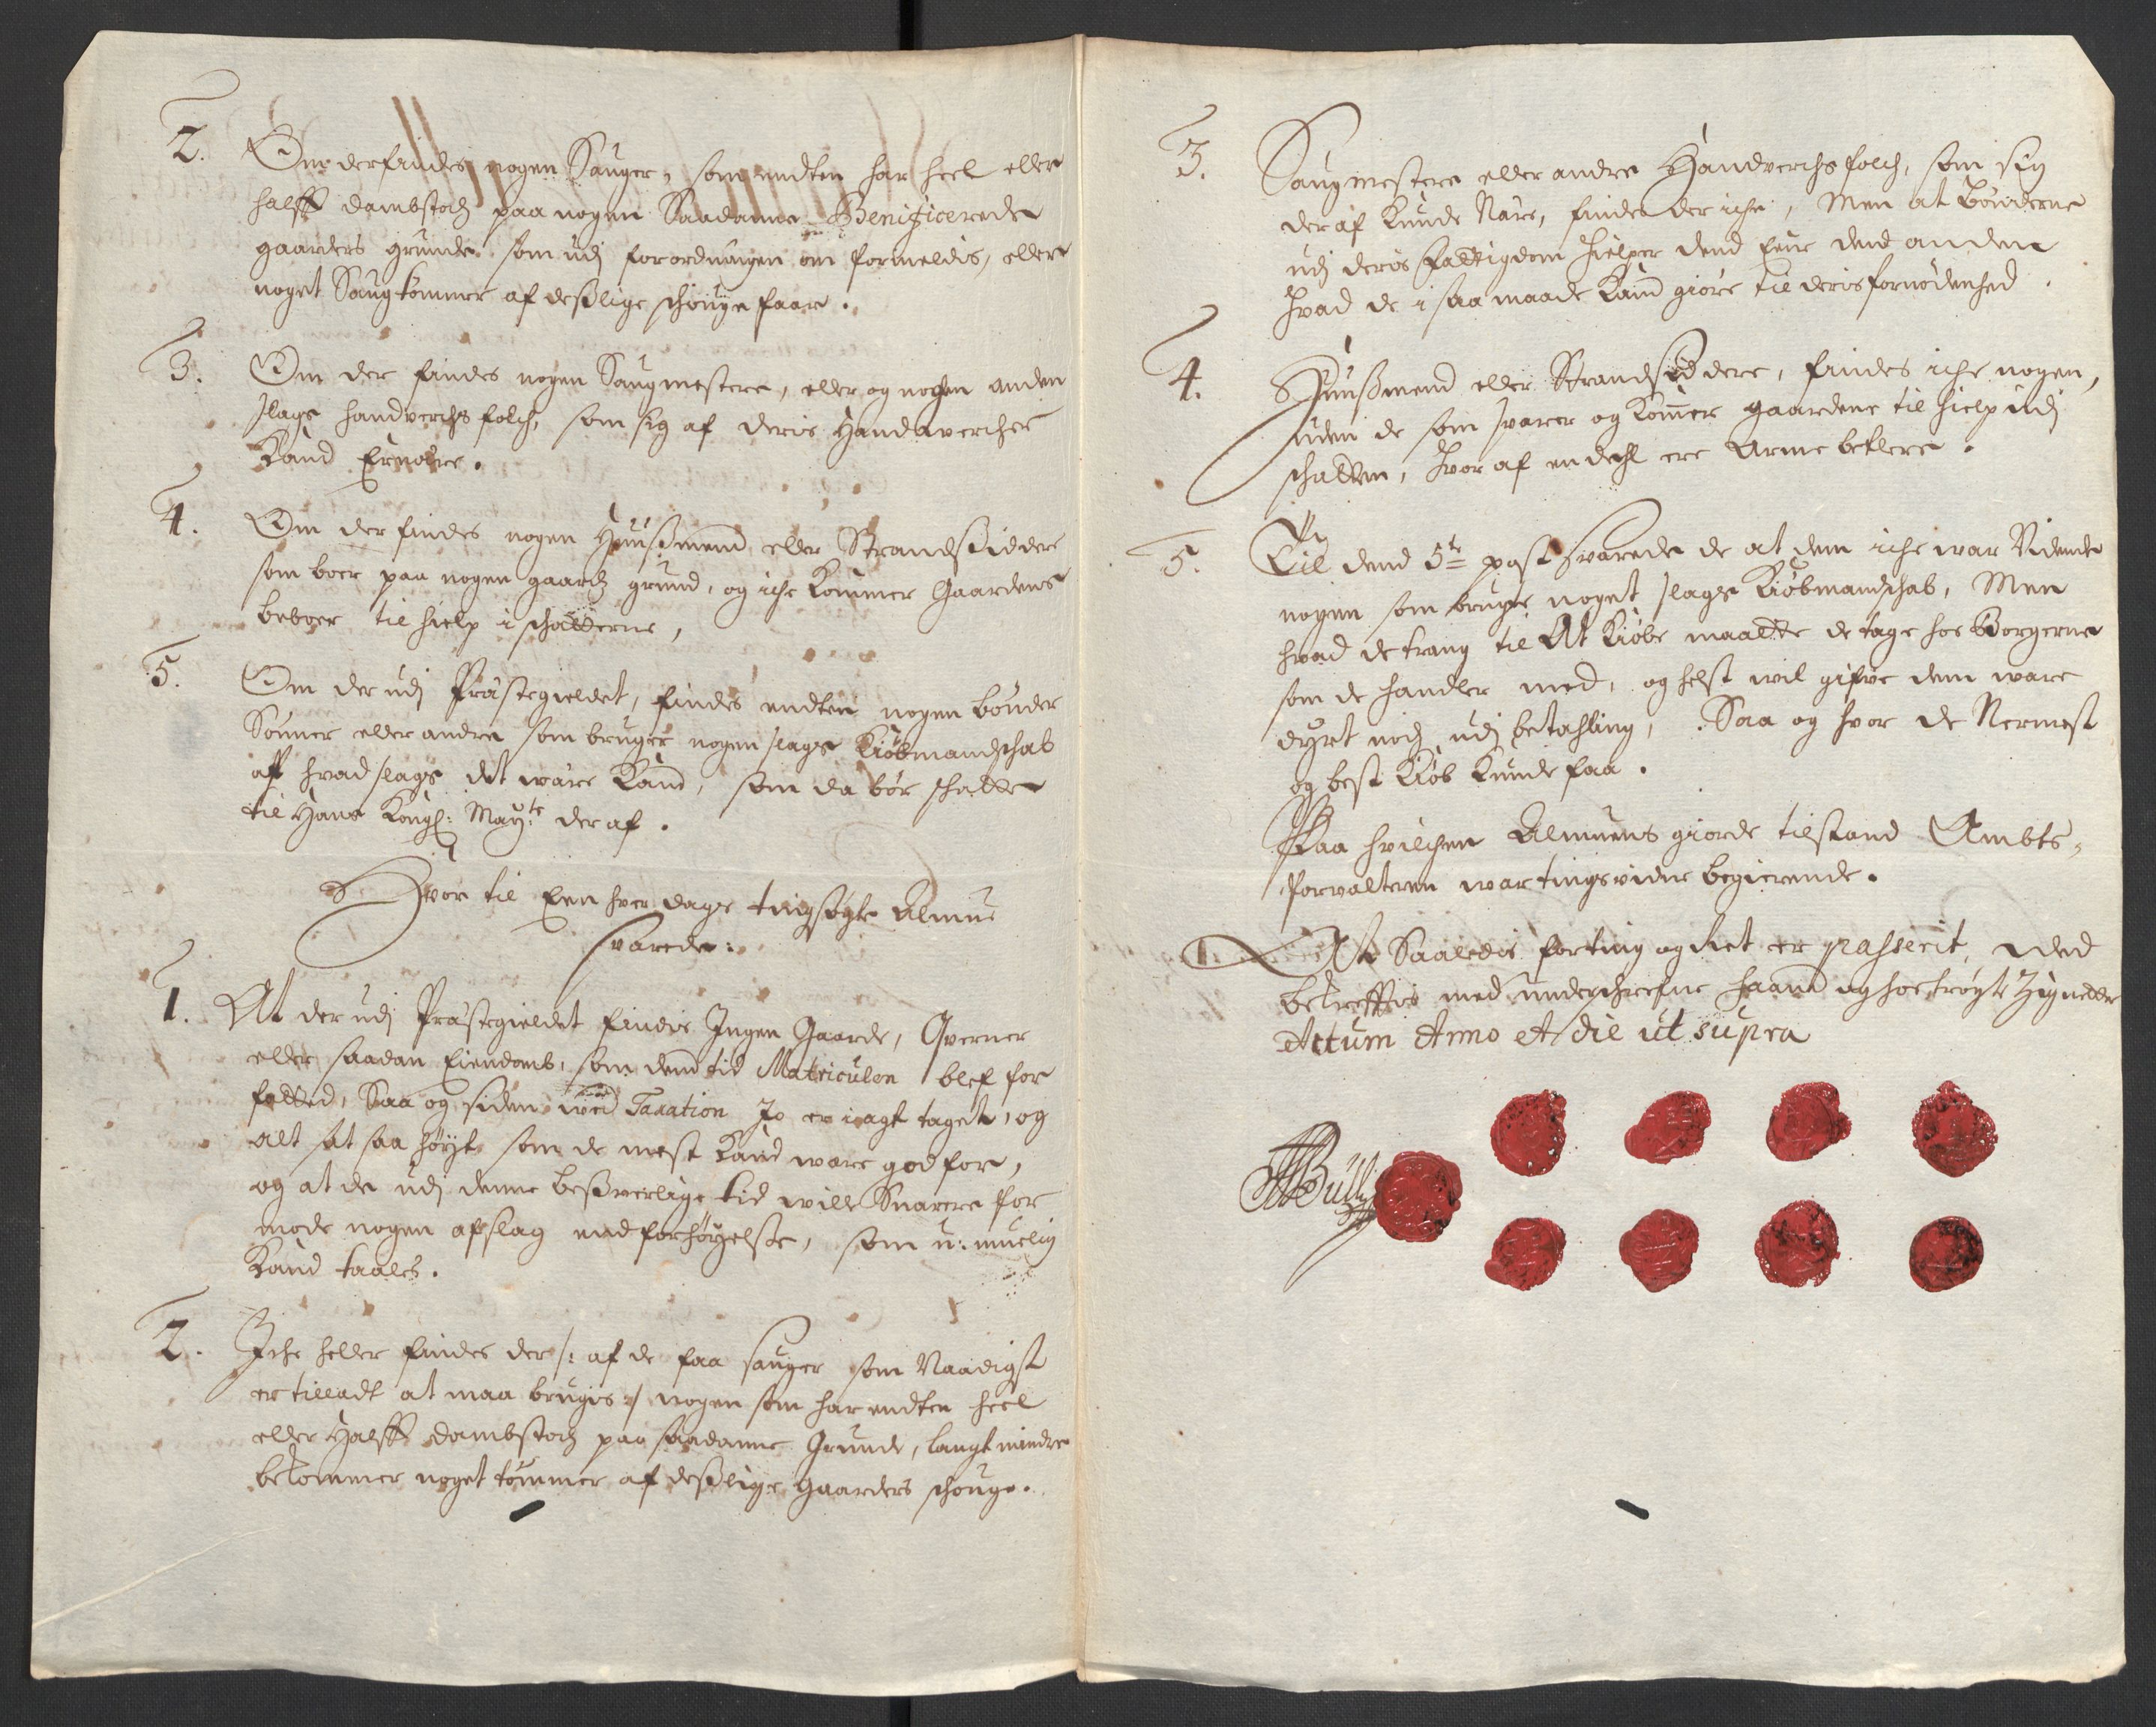 2. Om der findes nogen Sauger, som endten har heel eller
halff dambstoch paa nogen Saadanne Benificerede
gaarders grunde som udj forordningen om formeldis, eller
noget Saugtømmer af deslige schouge faar.
3. Om der findes nogen Saugmestere, eller og nogen anden
slags handverchs folch, som sig af deris Handtwercher
Kand Ernære.
4. Om der findes nogen Huusmend eller Strandsiddere
som boer paa nogen gaards grund, og iche kommer Gaardens
beboer til hielp i schatterne,
5. Om der udj Præstegieldet, findes endten nogen bønder
Sønner eller andre som bruger nogen slags Kiøbmandschab
aff hvad slags det være Kand, som da bør schatte
til Hans Kongl: May:ts der af.
Hvor til Een hver dags tingsøgte Almue
svarede:
1. At der udj Præstegieldet findis Ingen Gaarde, Qverner
eller saadan Eiendomb, som dend tid Matriculen blef for
fatted, Saa og siden wed Taxation Jo er i agt taget, og
alt sat saa høyt som de mest Kand were god for,
og at de udj denne besverlige tid wille Snarere for
mode nogen afslag end forhøyelse, som u-muelig
Kand taales.
2. Iche heller findes der /: af de faa sauger som Naadigst
er tilladt at maa brugis :/ nogen som har endten heel
eller Halff dambstoch paa saadanne Grunde, langt mindre
bekommer noget tømmer af deslige gaarders schouge.
3. Saugmestere eller andre Handverchs folch, som sig
der af Kunde Nære, findes der iche, Men at Bønderne
udj deris fattigdom hielper dend Eene dend anden
hvad de i saa maade Kand giøre til deris fornødenhed.
4. Huusmend eller Strandsiddere, findes iche nogen,
uden de som svarer og kommer gaardene til hielp udj
schatten, hvor af en dehl ere Arme betlere.
5. Til dend 5te post svarede de at dem iche war Vidende
nogen som bruger noget slags Kiøbmandschab, Men
hvad de trang til At Kiøbe maatte de tage hos Borgerne
som de handler med, og helst wil gifve dem ware
dyrt nok udj betahling, Saa og hvor de Nermest
og best Kiøb Kunde faa.
Paa hvilchen Almuens giorde tilstand Ambts-
forvalteren war tingsvidne begierende.
At Saaledis for ting og Ret er passerit, Ded
bekrefftis med underschrefne haand og hostrøgte Zignetter
Actum Anno et die ut supra